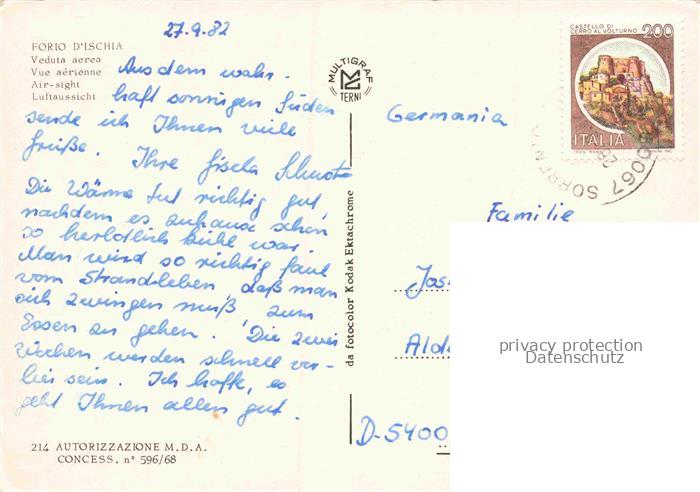 27.9.82
FORIO D'ISCHIA
Veduta aerea
Vue aérienne
Air-sight
Luftaussicht
Aus dem wahr-
haft sonnigen Süden
sende ich Ihnen viele
Grüße. Ihre Gisela
Die Wärme tut richtig gut,
nachdem es zuhause schon
so herbstlich kühl war.
Man wird so richtig faul
vom Strandleben, daß man
sich zwingen muß, zum
Essen zu gehen. Die zwei
Wochen werden schnell vor-
bei sein. Ich hoffe, es
geht Ihnen allen gut.
214 AUTORIZZAZIONE M.D.A.
CONCESS. n° 596/68
MULTIGRAF
TERNI
da fotocolor Kodak Ektachrome
CASTELLO DI
CERRO AL VOLTURNO 200
ITALIA
80067 SORRENTO
Germania
Familie
Jos
Ald
D-5400
privacy protection
Datenschutz